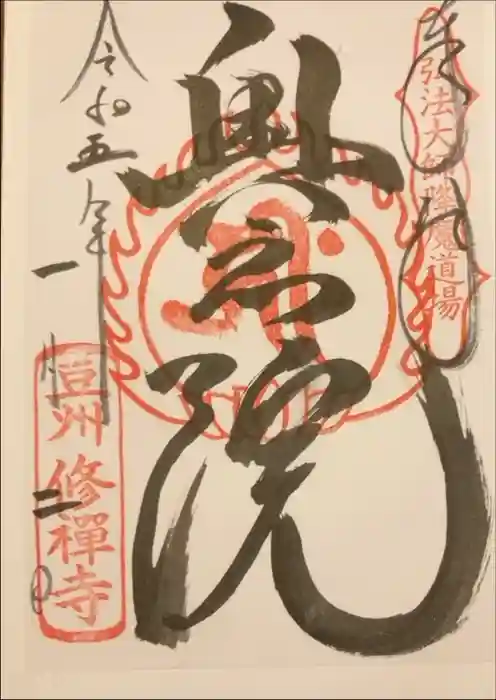 奉拝
弘法大師降魔道場
奥之院
令和五年
一月
二日
豆州 修禪寺